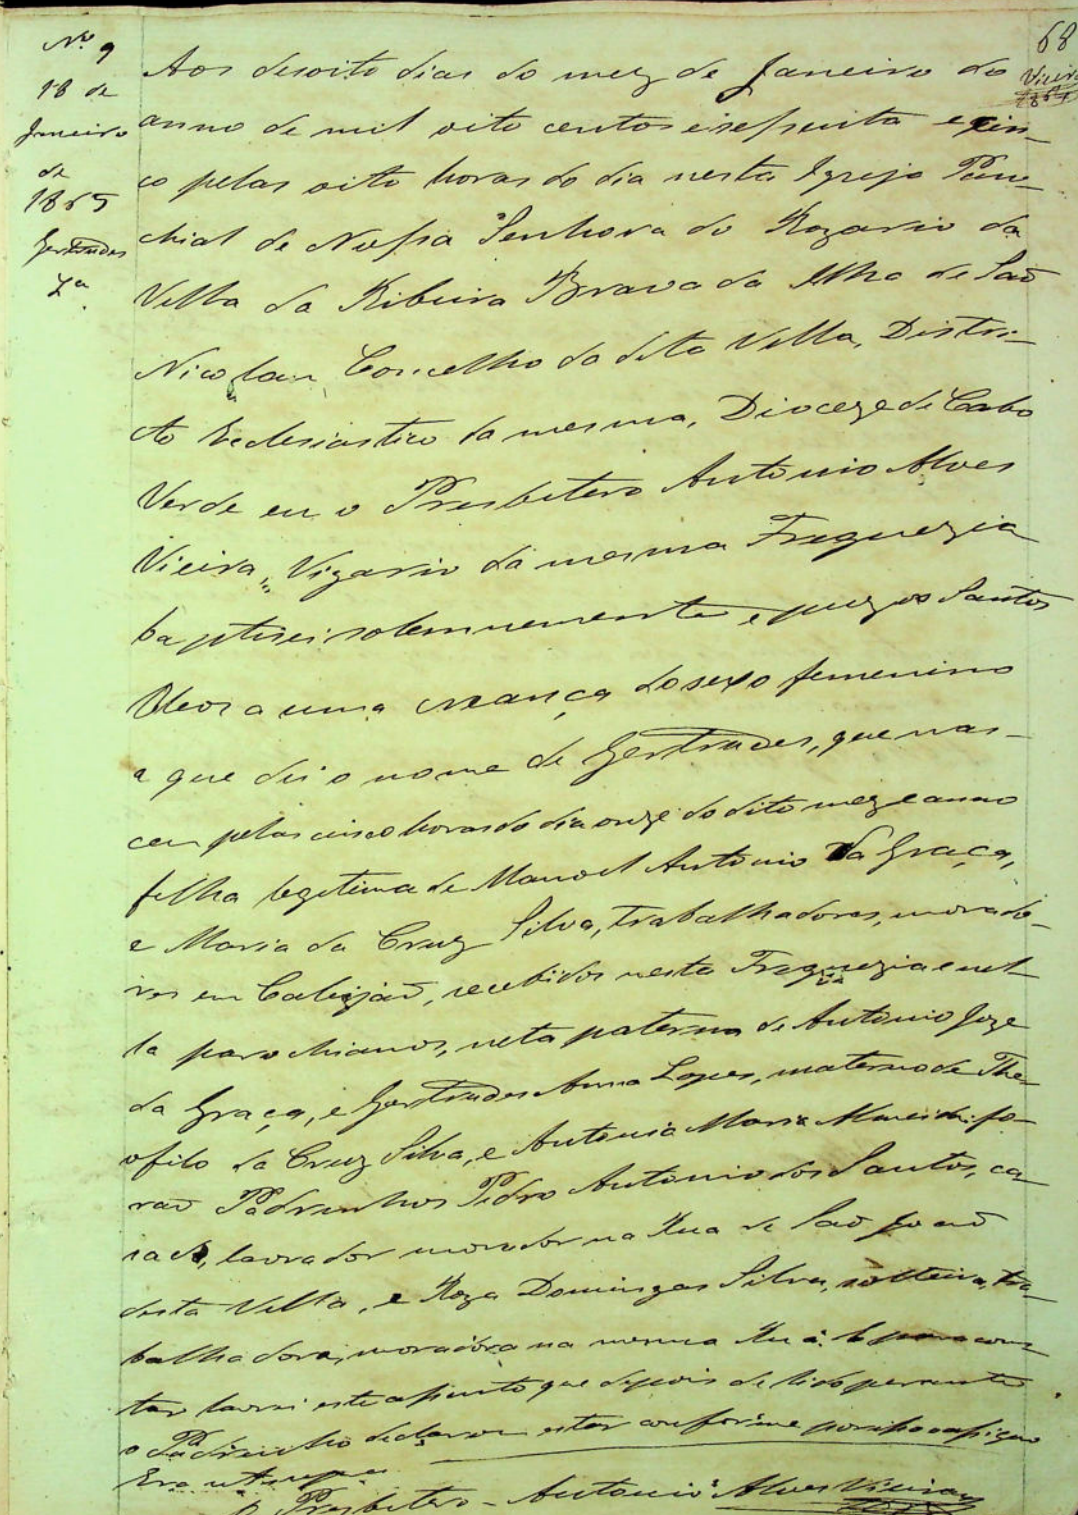 Nº 9
18 de
Janeiro
de
1865
Gertrudes
Lª
68
Vieira
Aos desoito dias do mez de Janeiro do
anno de mil oito centos e sessenta e cin-
co pelas oito horas do dia nesta Igreja Paro-
chial de Nossa Senhora do Rozario da
Villa da Ribeira Brava da Ilha de São
Nicolau, Concelho da dita Villa, Distri-
cto Ecclesiastico da mesma, Dioceze de Cabo
Verde eu o Presbitero Antonio Alves
Vieira, Vigario da mesma Freguezia
baptisei solemnemente e puz os Santos
Oleos a uma creança do sexo femenino
a que dei o nome de Gertrudes, que nas-
ceu pelas cinco horas do dia onze do dito mez e anno
filha legitima de Manoel Antonio da Graça,
e Maria da Cruz Silva, trabalhadores, morado-
res em Caleijão, recebidos nesta Freguezia e nel-
la parochianos, neta paterna de Antonio Joze
da Graça, e Gertrudes Anna Lopes, materna de The-
ofilo da Cruz Silva, e Antonia Maria Almeida: fo-
rão Padrinhos Pedro Antonio dos Santos, ca-
sado, lavrador morador na Rua de São João
desta Villa, e Roza Domingas Silva, solteira, tra-
balhadora, moradora na mesma Rua. E para cons-
tar lavrei este assento que depois de lido perante
o Padrinho declarou estar conforme por isso assigno
Era ut supra
O Presbitero - Antonio Alves Vieira